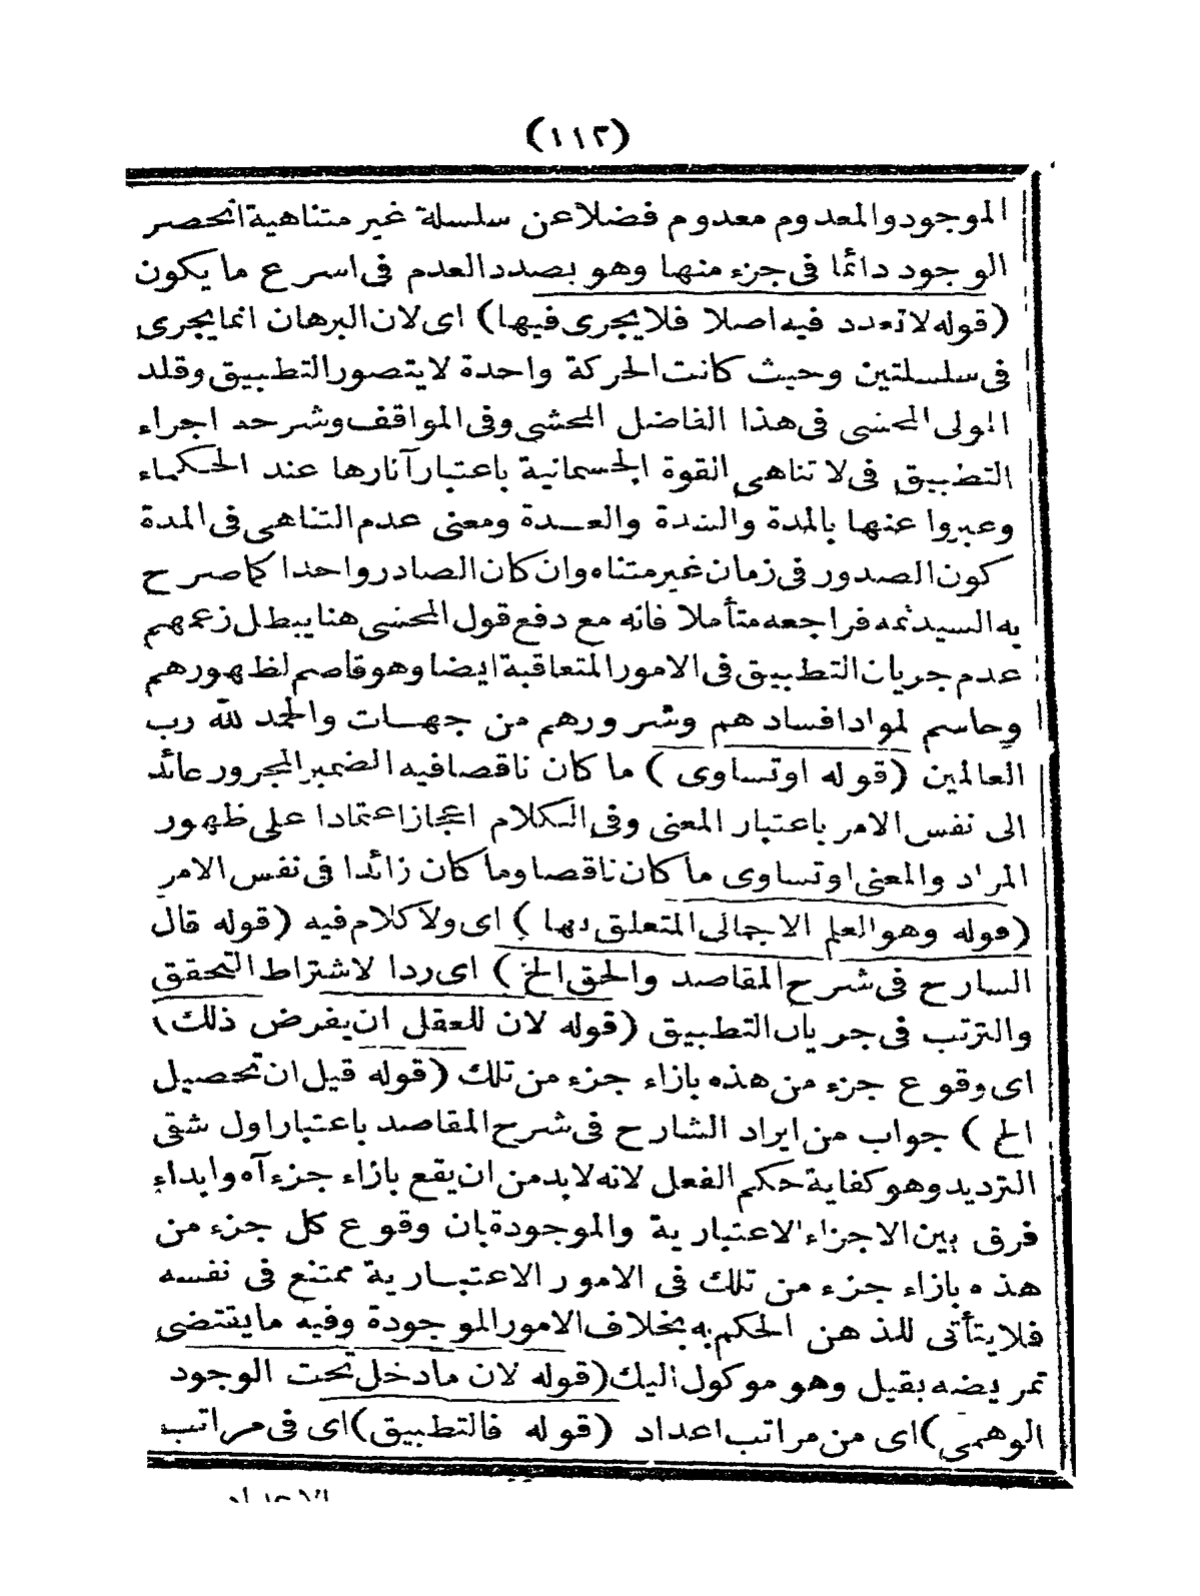 (١١٢)
الموجود والمعدوم معدوم فضلا عن سلسلة غير متناهية انحصر
الوجود دائما فى جزء منها وهو بصدد العدم فى اسرع ما يكون
(قوله لا تعدد فيه اصلا فلا يجرى فيها) اى لان البرهان انما يجرى
فى سلسلتين وحيث كانت الحركة واحدة لا يتصور التطبيق وقلد
المولى المحشى فى هذا الفاضل المحشى وفى المواقف وشرحه اجراء
التطبيق فى لا تناهى القوة الجسمانية باعتبار آثارها عند الحكماء
وعبروا عنها بالمدة والشدة والعدة ومعنى عدم التناهى فى المدة
كون الصدور فى زمان غير متناه وان كان الصادر واحدا كما صرح
به السيد ثمه فراجعه متأملا فانه مع دفع قول المحشى هنا يبطل زعمهم
عدم جريان التطبيق فى الامور المتعاقبة ايضا وهو قاصم لظهورهم
وحاسم لمواد افسادهم وشرورهم من جهات والحمد لله رب
العالمين (قوله او تساوى) ما كان ناقصا فيه الضمير المجرور عائد
الى نفس الامر باعتبار المعنى وفى الكلام اعجاز اعتمادا على ظهور
المراد والمعنى او تساوى ما كان ناقصا وما كان زائدا فى نفس الامر
(قوله وهو العلم الاجمالى المتعلق بها) اى ولا كلام فيه (قوله قال
الشارح فى شرح المقاصد والحق الخ) اى ردا لاشتراط التحقق
والترتب فى جريان التطبيق (قوله لان للعقل ان يفرض ذلك)
اى وقوع جزء من هذه بازاء جزء من تلك (قوله قيل ان تحصيل
الخ) جواب من ايراد الشارح فى شرح المقاصد باعتبار اول شقى
الترديد وهو كفاية حكم الفعل لانه لابد من ان يقع بازاء جزء آه وابداء
فرق بين الاجزاء الاعتبارية والموجودة بان وقوع كل جزء من
هذه بازاء جزء من تلك فى الامور الاعتبارية ممتنع فى نفسه
فلا يتأتى للذهن الحكم به بخلاف الامور الموجودة وفيه ما يقتضى
تمريضه بقيل وهو موكول اليك (قوله لان ما دخل تحت الوجود
الوهمى) اى من مراتب اعداد (قوله فالتطبيق) اى فى مراتب
الاعداد